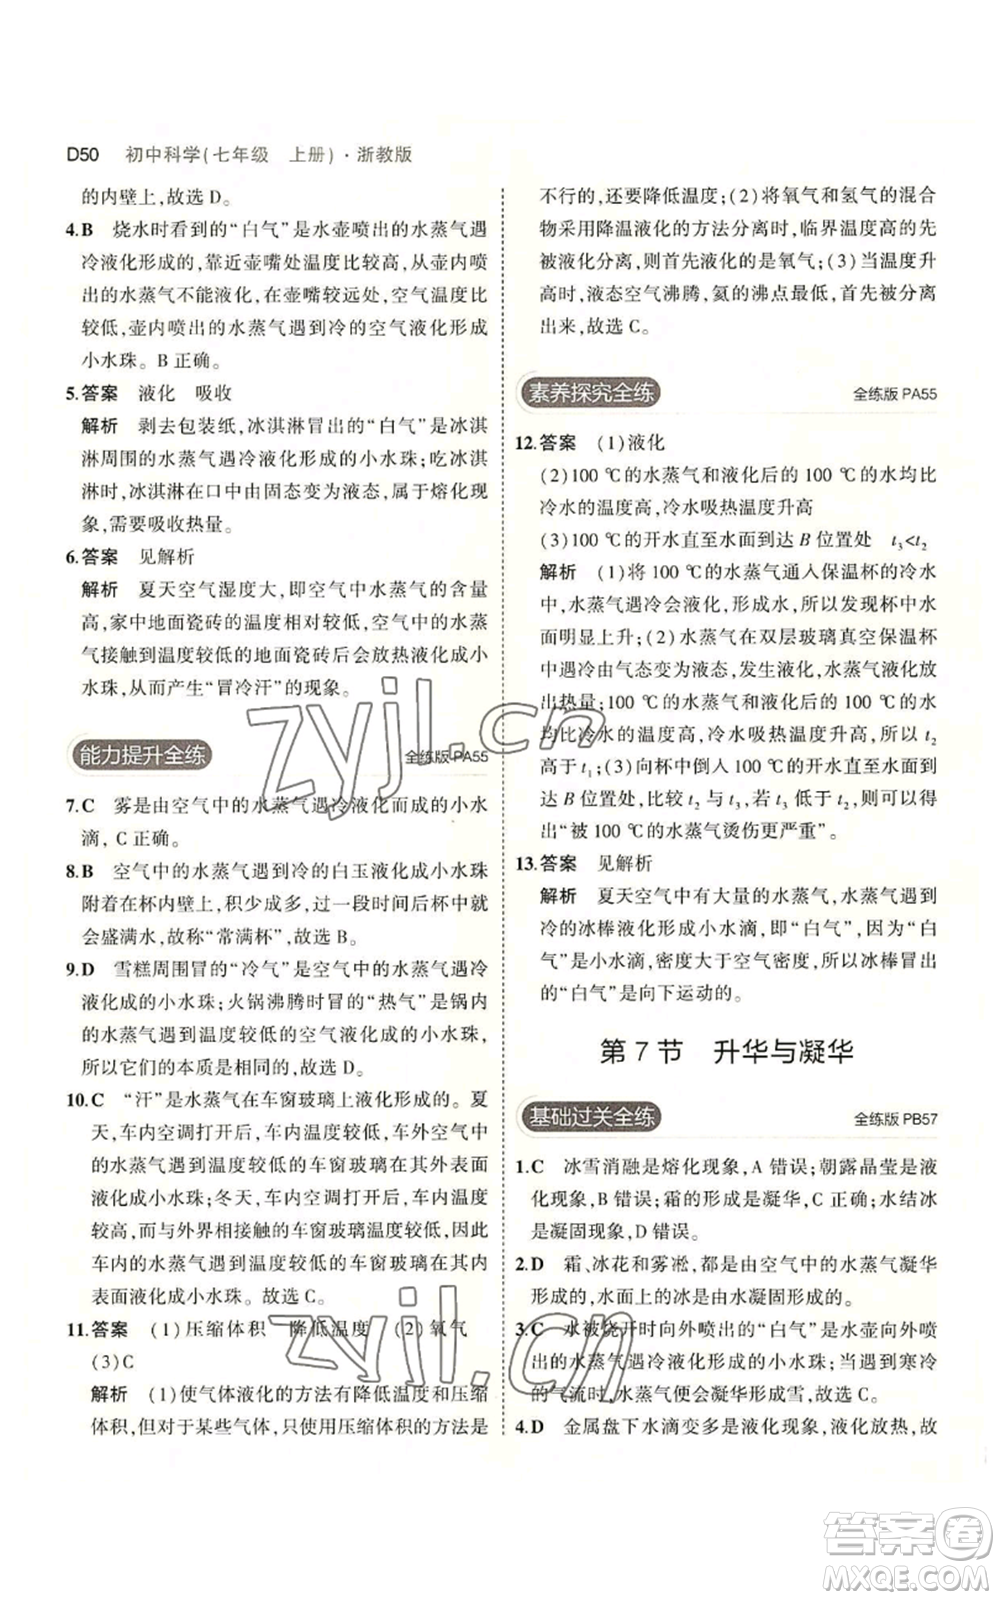 D50 初中科学(七年级 上册)·浙教版
的内壁上,故选 D。
4.B 烧水时看到的“白气”是水壶喷出的水蒸气遇
冷液化形成的,靠近壶嘴处温度比较高,从壶内喷
出的水蒸气不能液化,在壶嘴较远处,空气温度比
较低,壶内喷出的水蒸气遇到冷的空气液化形成
小水珠。B 正确。
5.答案 液化 吸收
解析 剥去包装纸,冰淇淋冒出的“白气”是冰淇
淋周围的水蒸气遇冷液化形成的小水珠;吃冰淇
淋时,冰淇淋在口中由固态变为液态,属于熔化现
象,需要吸收热量。
6.答案 见解析
解析 夏天空气湿度大,即空气中水蒸气的含量
高,家中地面瓷砖的温度相对较低,空气中的水蒸
气接触到温度较低的地面瓷砖后会放热液化成小
水珠,从而产生“冒冷汗”的现象。
能力提升全练 全练版 PA55
7.C 雾是由空气中的水蒸气遇冷液化而成的小水
滴, C 正确。
8.B 空气中的水蒸气遇到冷的白玉液化成小水珠
附着在杯内壁上,积少成多,过一段时间后杯中就
会盛满水,故称“常满杯”,故选 B。
9.D 雪糕周围冒的“冷气”是空气中的水蒸气遇冷
液化成的小水珠;火锅沸腾时冒的“热气”是锅内
的水蒸气遇到温度较低的空气液化成的小水珠,
所以它们的本质是相同的,故选 D。
10.C “汗”是水蒸气在车窗玻璃上液化形成的。夏
天,车内空调打开后,温度较低,车外空气中
的水蒸气遇到温度较低的车窗玻璃在其外表面
液化成小水珠;冬天,车内空调打开后,车内温度
较高,而与外界相接触的车窗玻璃温度较低,所以
车内的水蒸气遇到温度较低的车窗玻璃在其内
表面液化成小水珠。故选 C。
11.答案 (1)压缩体积 降低温度 (2)氧气
(3)C
解析 (1)使气体液化的方法有降低温度和压缩
体积,但对于某些气体,只压缩体积的方法是
不行的,还要降低温度;(2)将氧气和氢气的混合
物采用降温液化的方法分离时,临界温度高的先
被液化分离,则首先液化的是氧气;(3)当温度升
高时,液态空气沸腾,氦的沸点最低,首先被分离
出来,故选 C。
素养探究全练 全练版 PA55
12.答案 (1)液化
(2)100 ℃的水蒸气和液化后的 100 ℃的水均比
冷水的温度高,冷水吸热温度升高
(3)100 ℃的开水直至水面到达 B 位置处 t₃<t₂
解析 (1)将 100 ℃的水蒸气通入保温杯的冷水
中,水蒸气遇冷会液化,形成水,所以发现杯中水
面明显上升;(2)水蒸气在双层玻璃真空保温杯
中遇冷由气态变为液态,发生液化,水蒸气液化放
出热量;100 ℃的水蒸气和液化后的 100 ℃的水
均比冷水的温度高,冷水吸热温度升高,所以 t₂
高;(3)向杯中倒入 100 ℃的开水直至水面到
达 B 位置处,比较 t₂ 与 t₃,若 t₃ 低于 t₂,则可以得
出“被 100 ℃的水蒸气烫伤更严重”。
13.答案 见解析
解析 夏天空气中有大量的水蒸气,水蒸气遇到
冷的冰棒液化成小水滴,即“白气”,因为“白气”
是小水滴,密度大于空气密度,所以冰棒冒出
的“白气”是向下运动的。
第 7 节 升华与凝华
基础过关全练 全练版 PB57
1.C 冰雪消融是熔化现象,A 错误;朝露晶莹是液
化现象,B 错误;霜的形成是凝华,C 正确;水结冰
是凝固现象,D 错误。
2.D 霜、冰花和雾凇,都是由空气中的水蒸气凝华
形成的,水面上的冰是由水凝固形成的。
3.C 水被烧开时向外喷出的“白气”是水壶向外喷
出的水蒸气遇冷液化形成的小水珠,当遇到寒冷
的气流时,水蒸气便会凝华形成雪,故选 C。
4.D 金属盘下水滴变多是液化现象,液化放热,故
zyjl.cn
zyjl.cn
答案卷
MXQE.COM